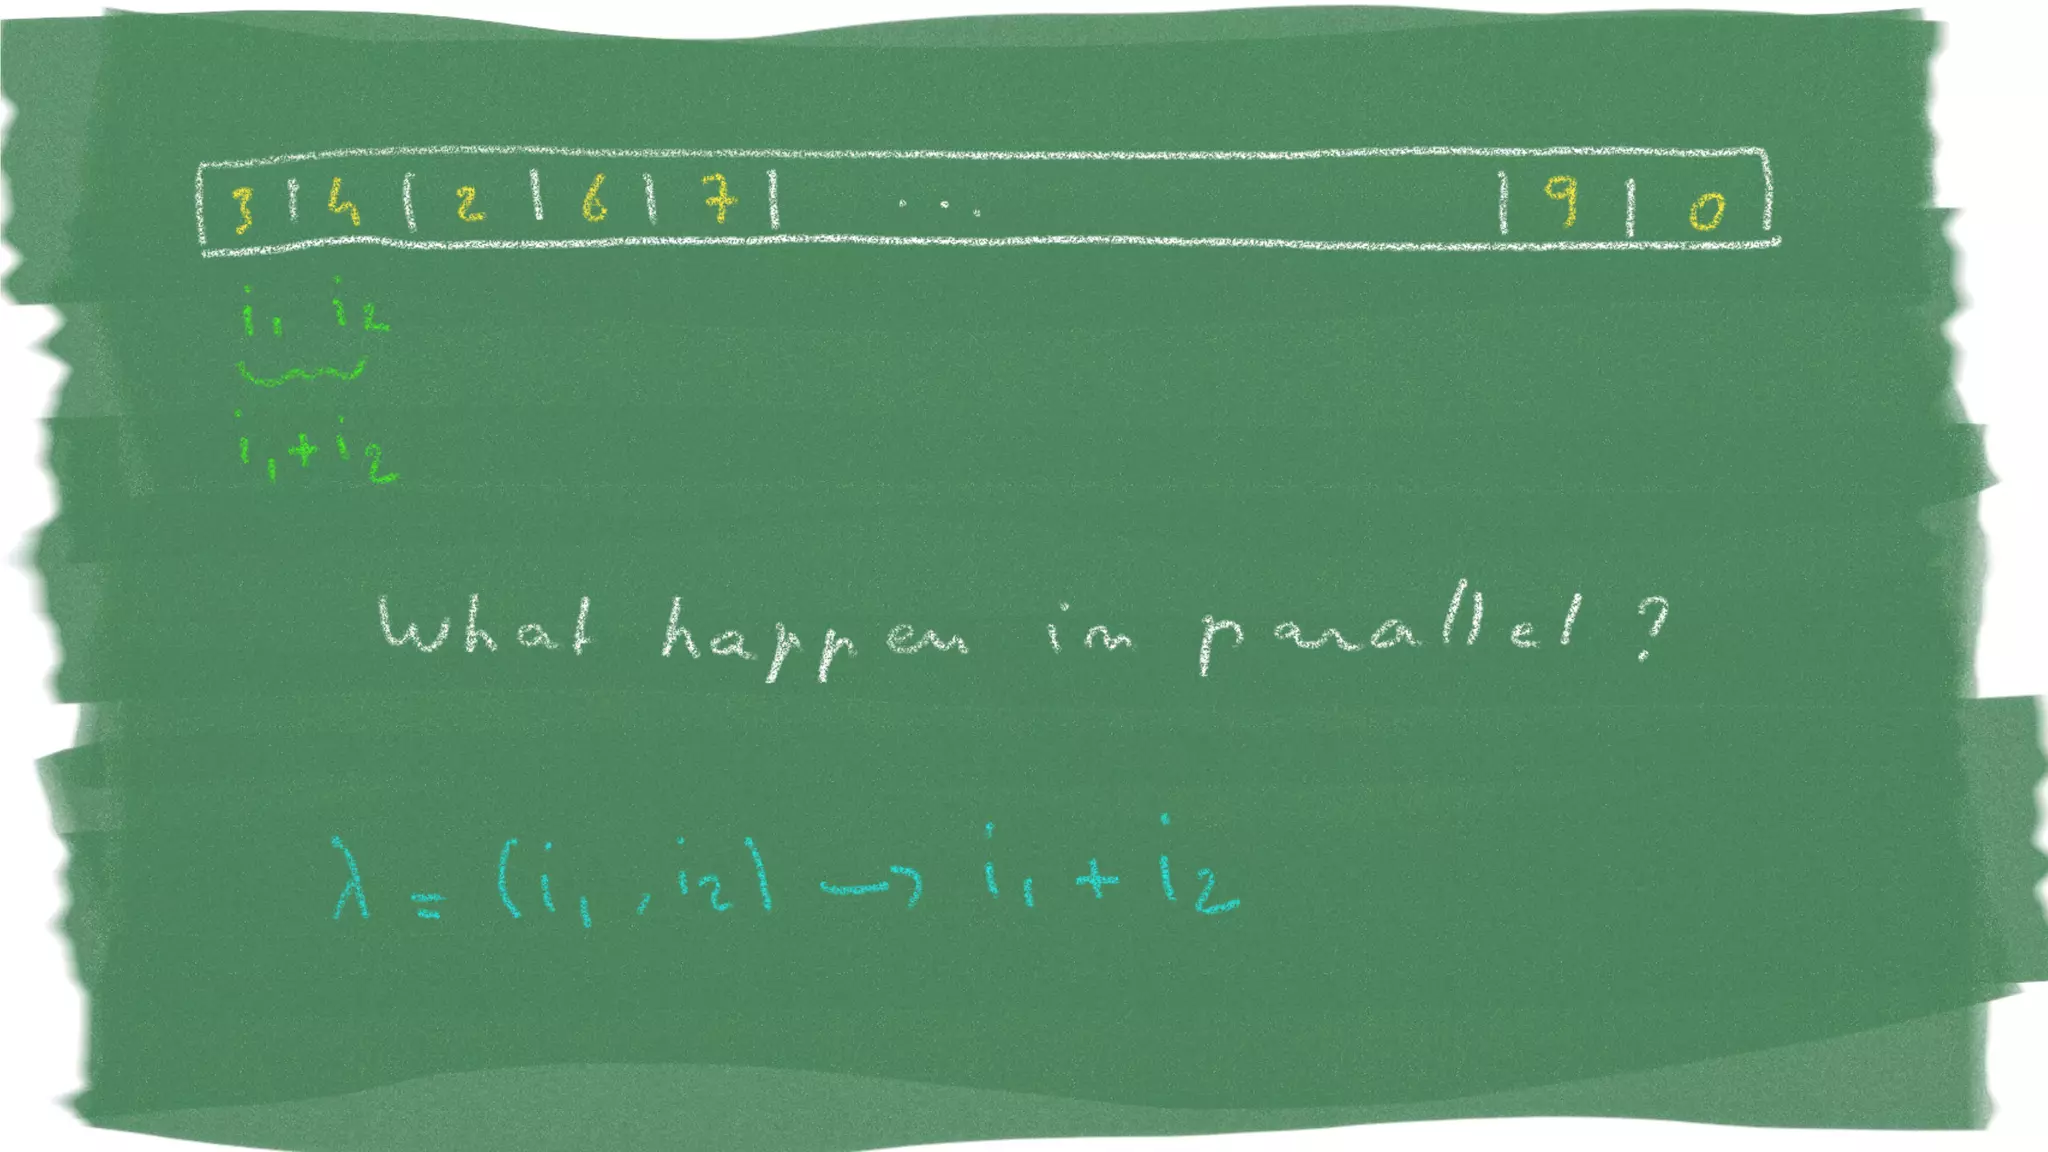 3 | 4 | 2 | 6 | 7 | ... | 9 | 0
i1 i2
i1+i2
What happen in parallel?
λ = (i1, i2) → i1 + i2